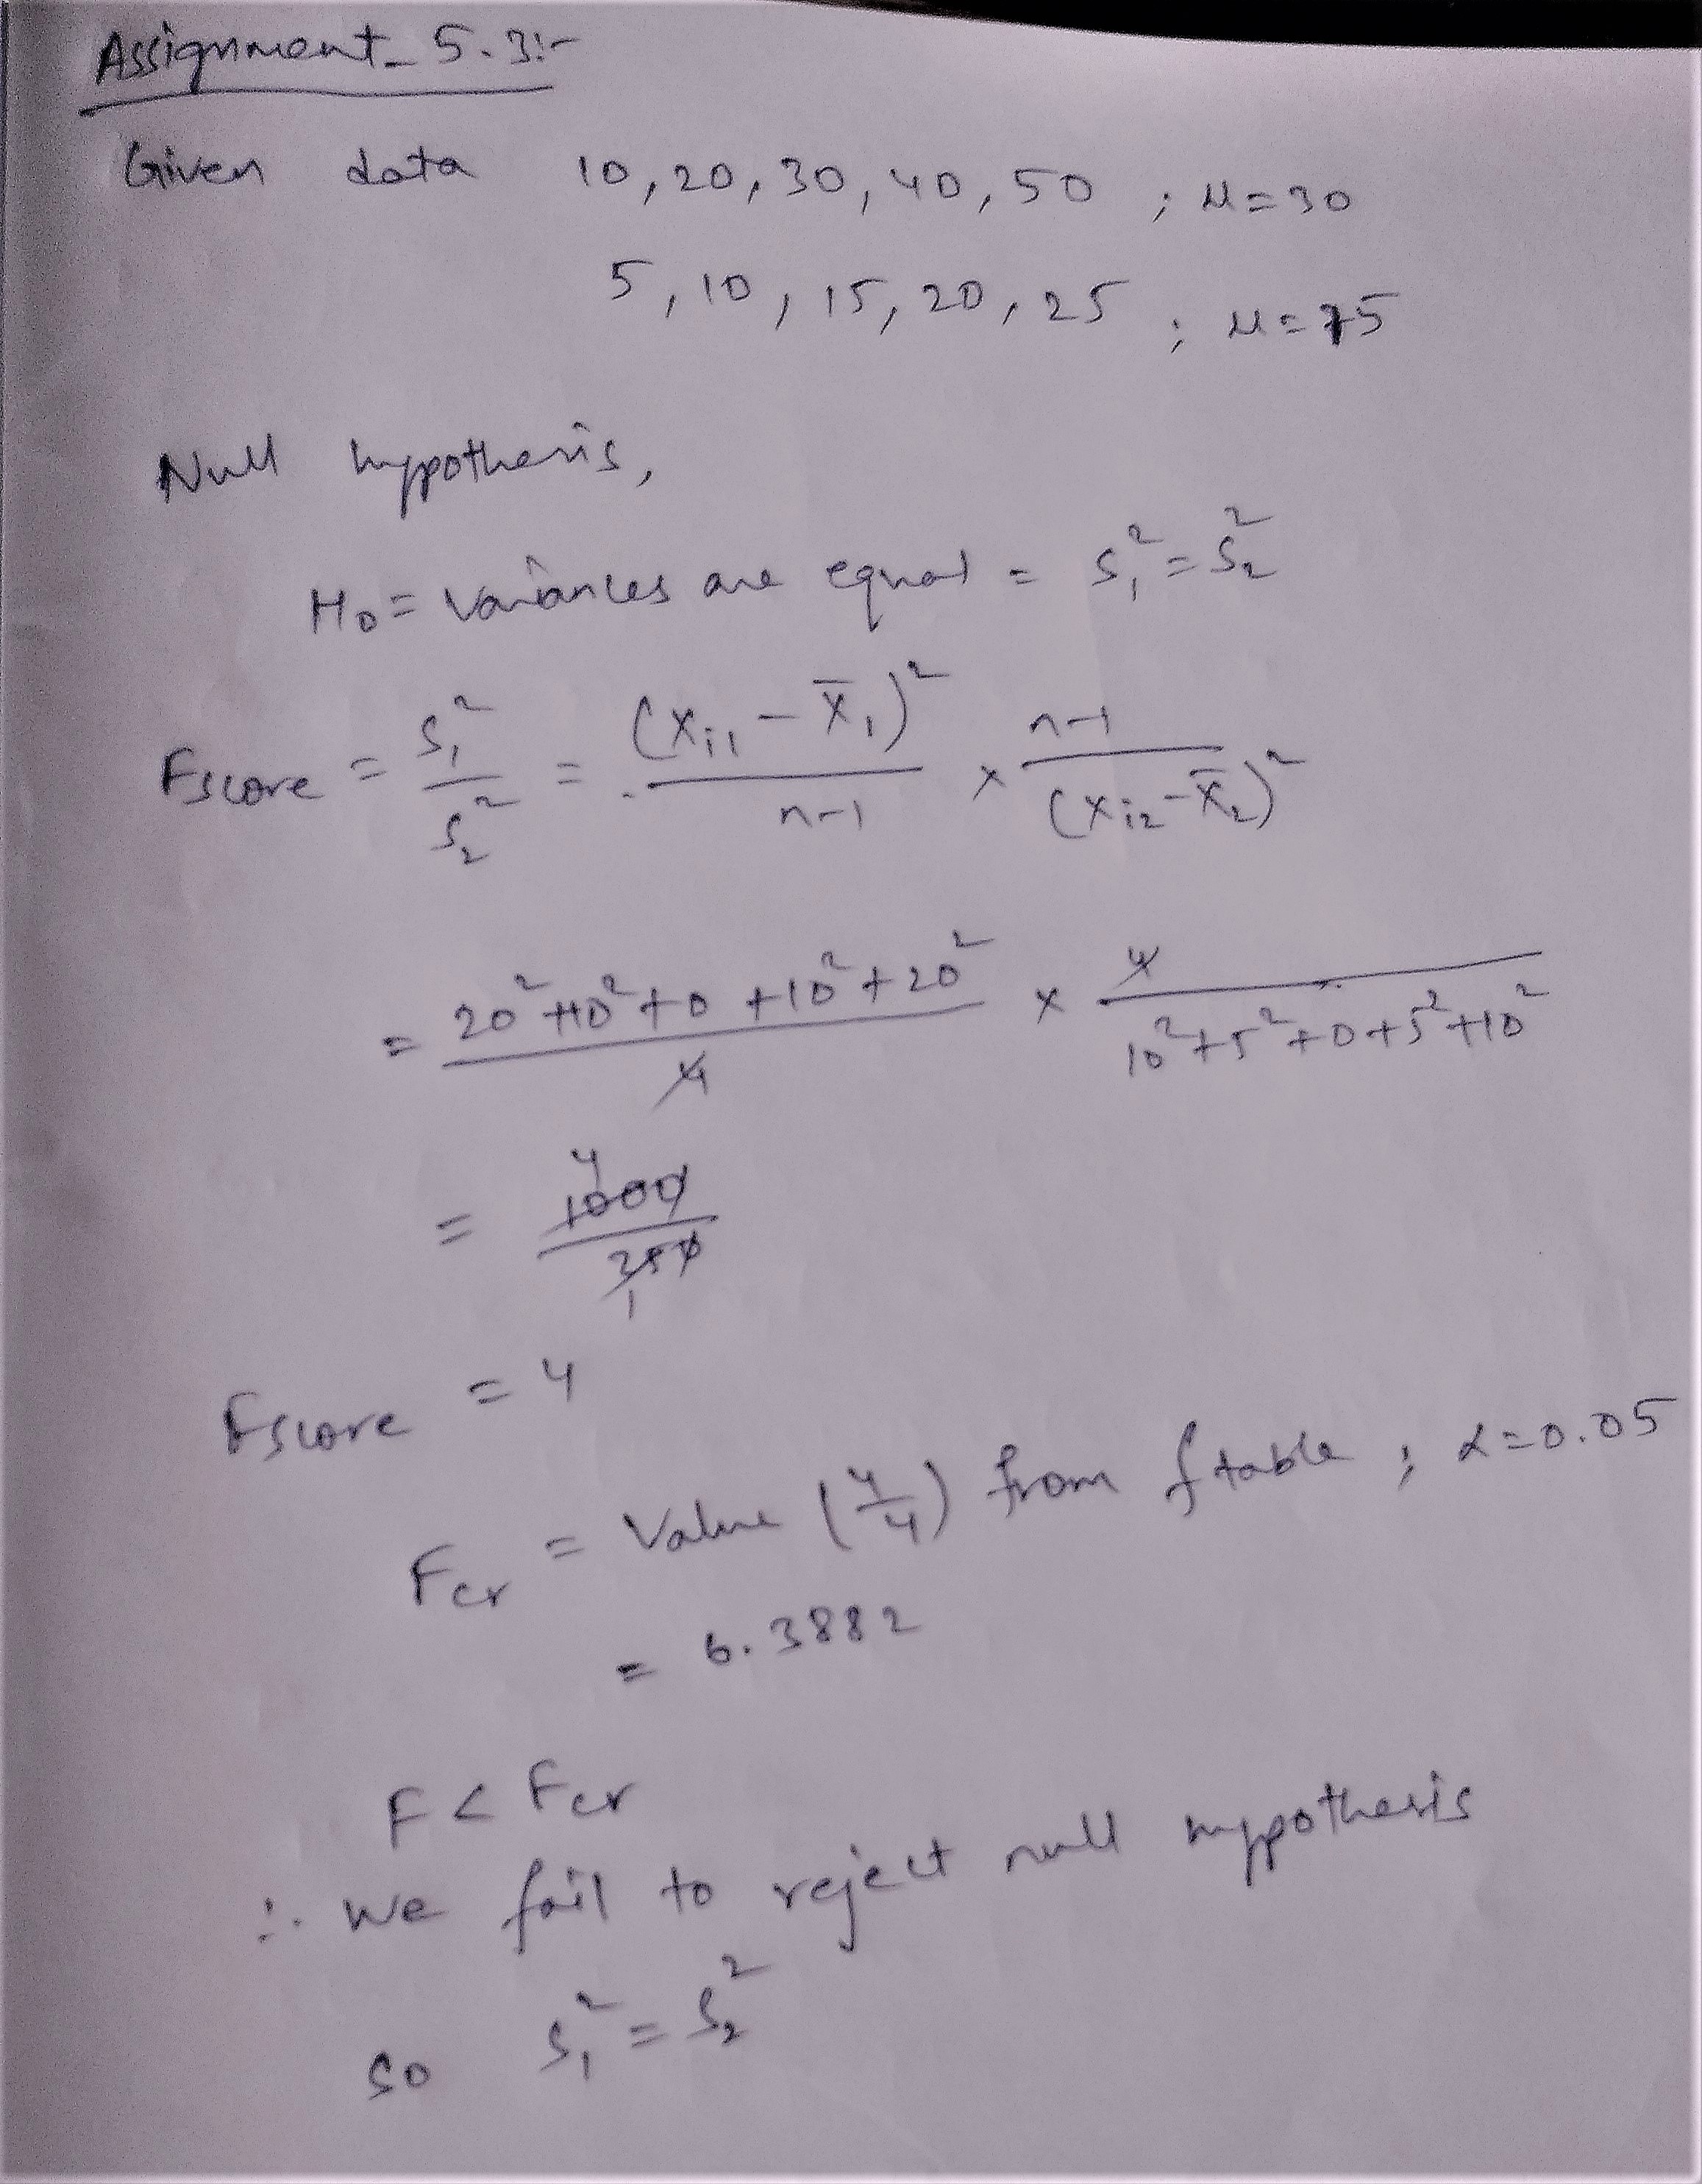 Assignment_ 5.3:-
Given data 10,20,30,40,50 ; μ=30
5,10,15,20,25 ; μ=75
Null hypothesis,
H₀= Variances are equal = S₁²=S₂²
Fscore = S₁²/S₂² = (Xi₁ - X̄₁)²/n-1 × n-1/(Xi₂-X̄₂)²
= 20²+10²+0+10²+20²/4 × 4/10²+5²+0+5²+10²
= 1000/250 4 1
Fscore = 4
Fcr = Value (4/4) from f table ; α=0.05
= 6.3882
F < Fcr
∴ We fail to reject null hypothesis
So S₁² = S₂²